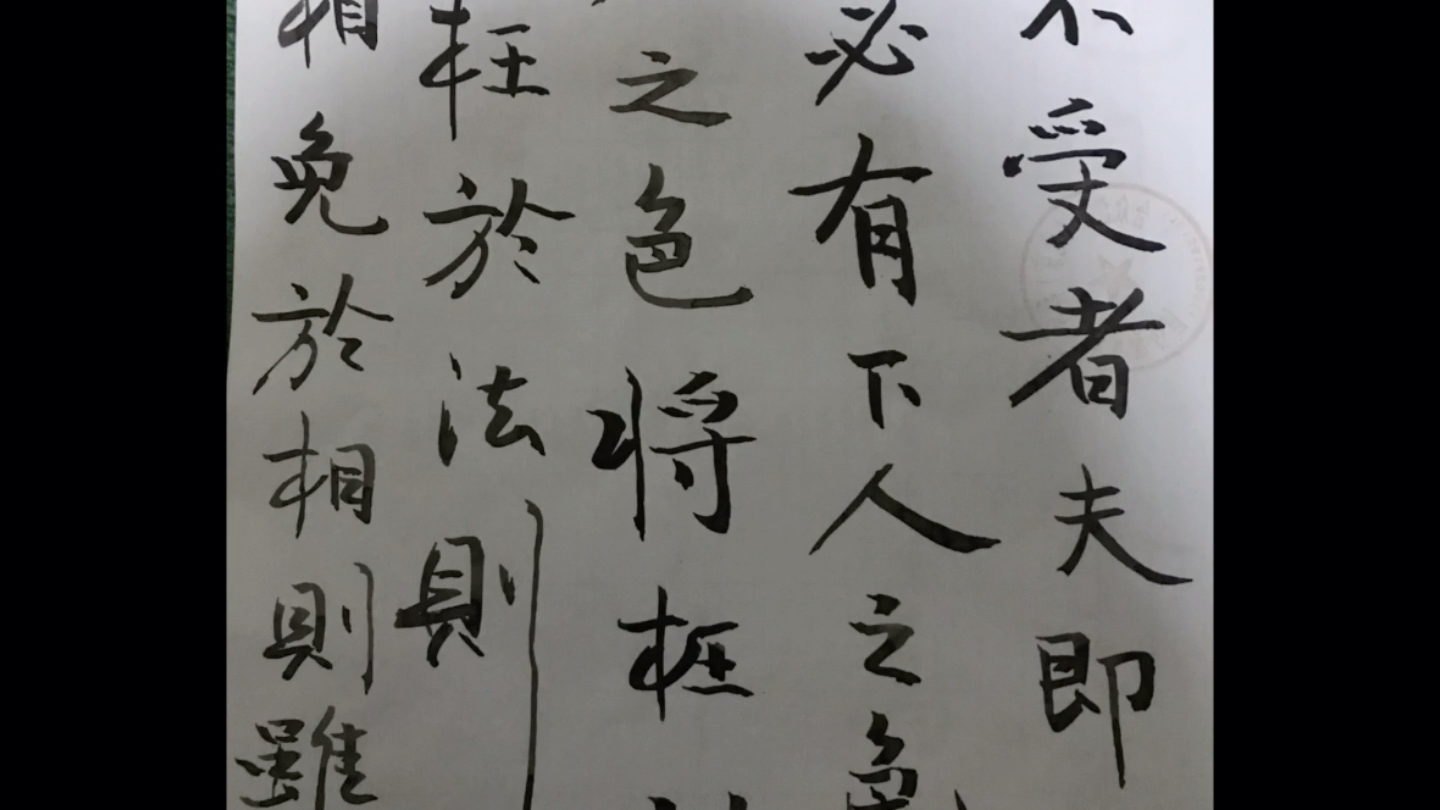 不受者夫即
必有下人之色
之色將枉
枉於法則
相免於相則雖